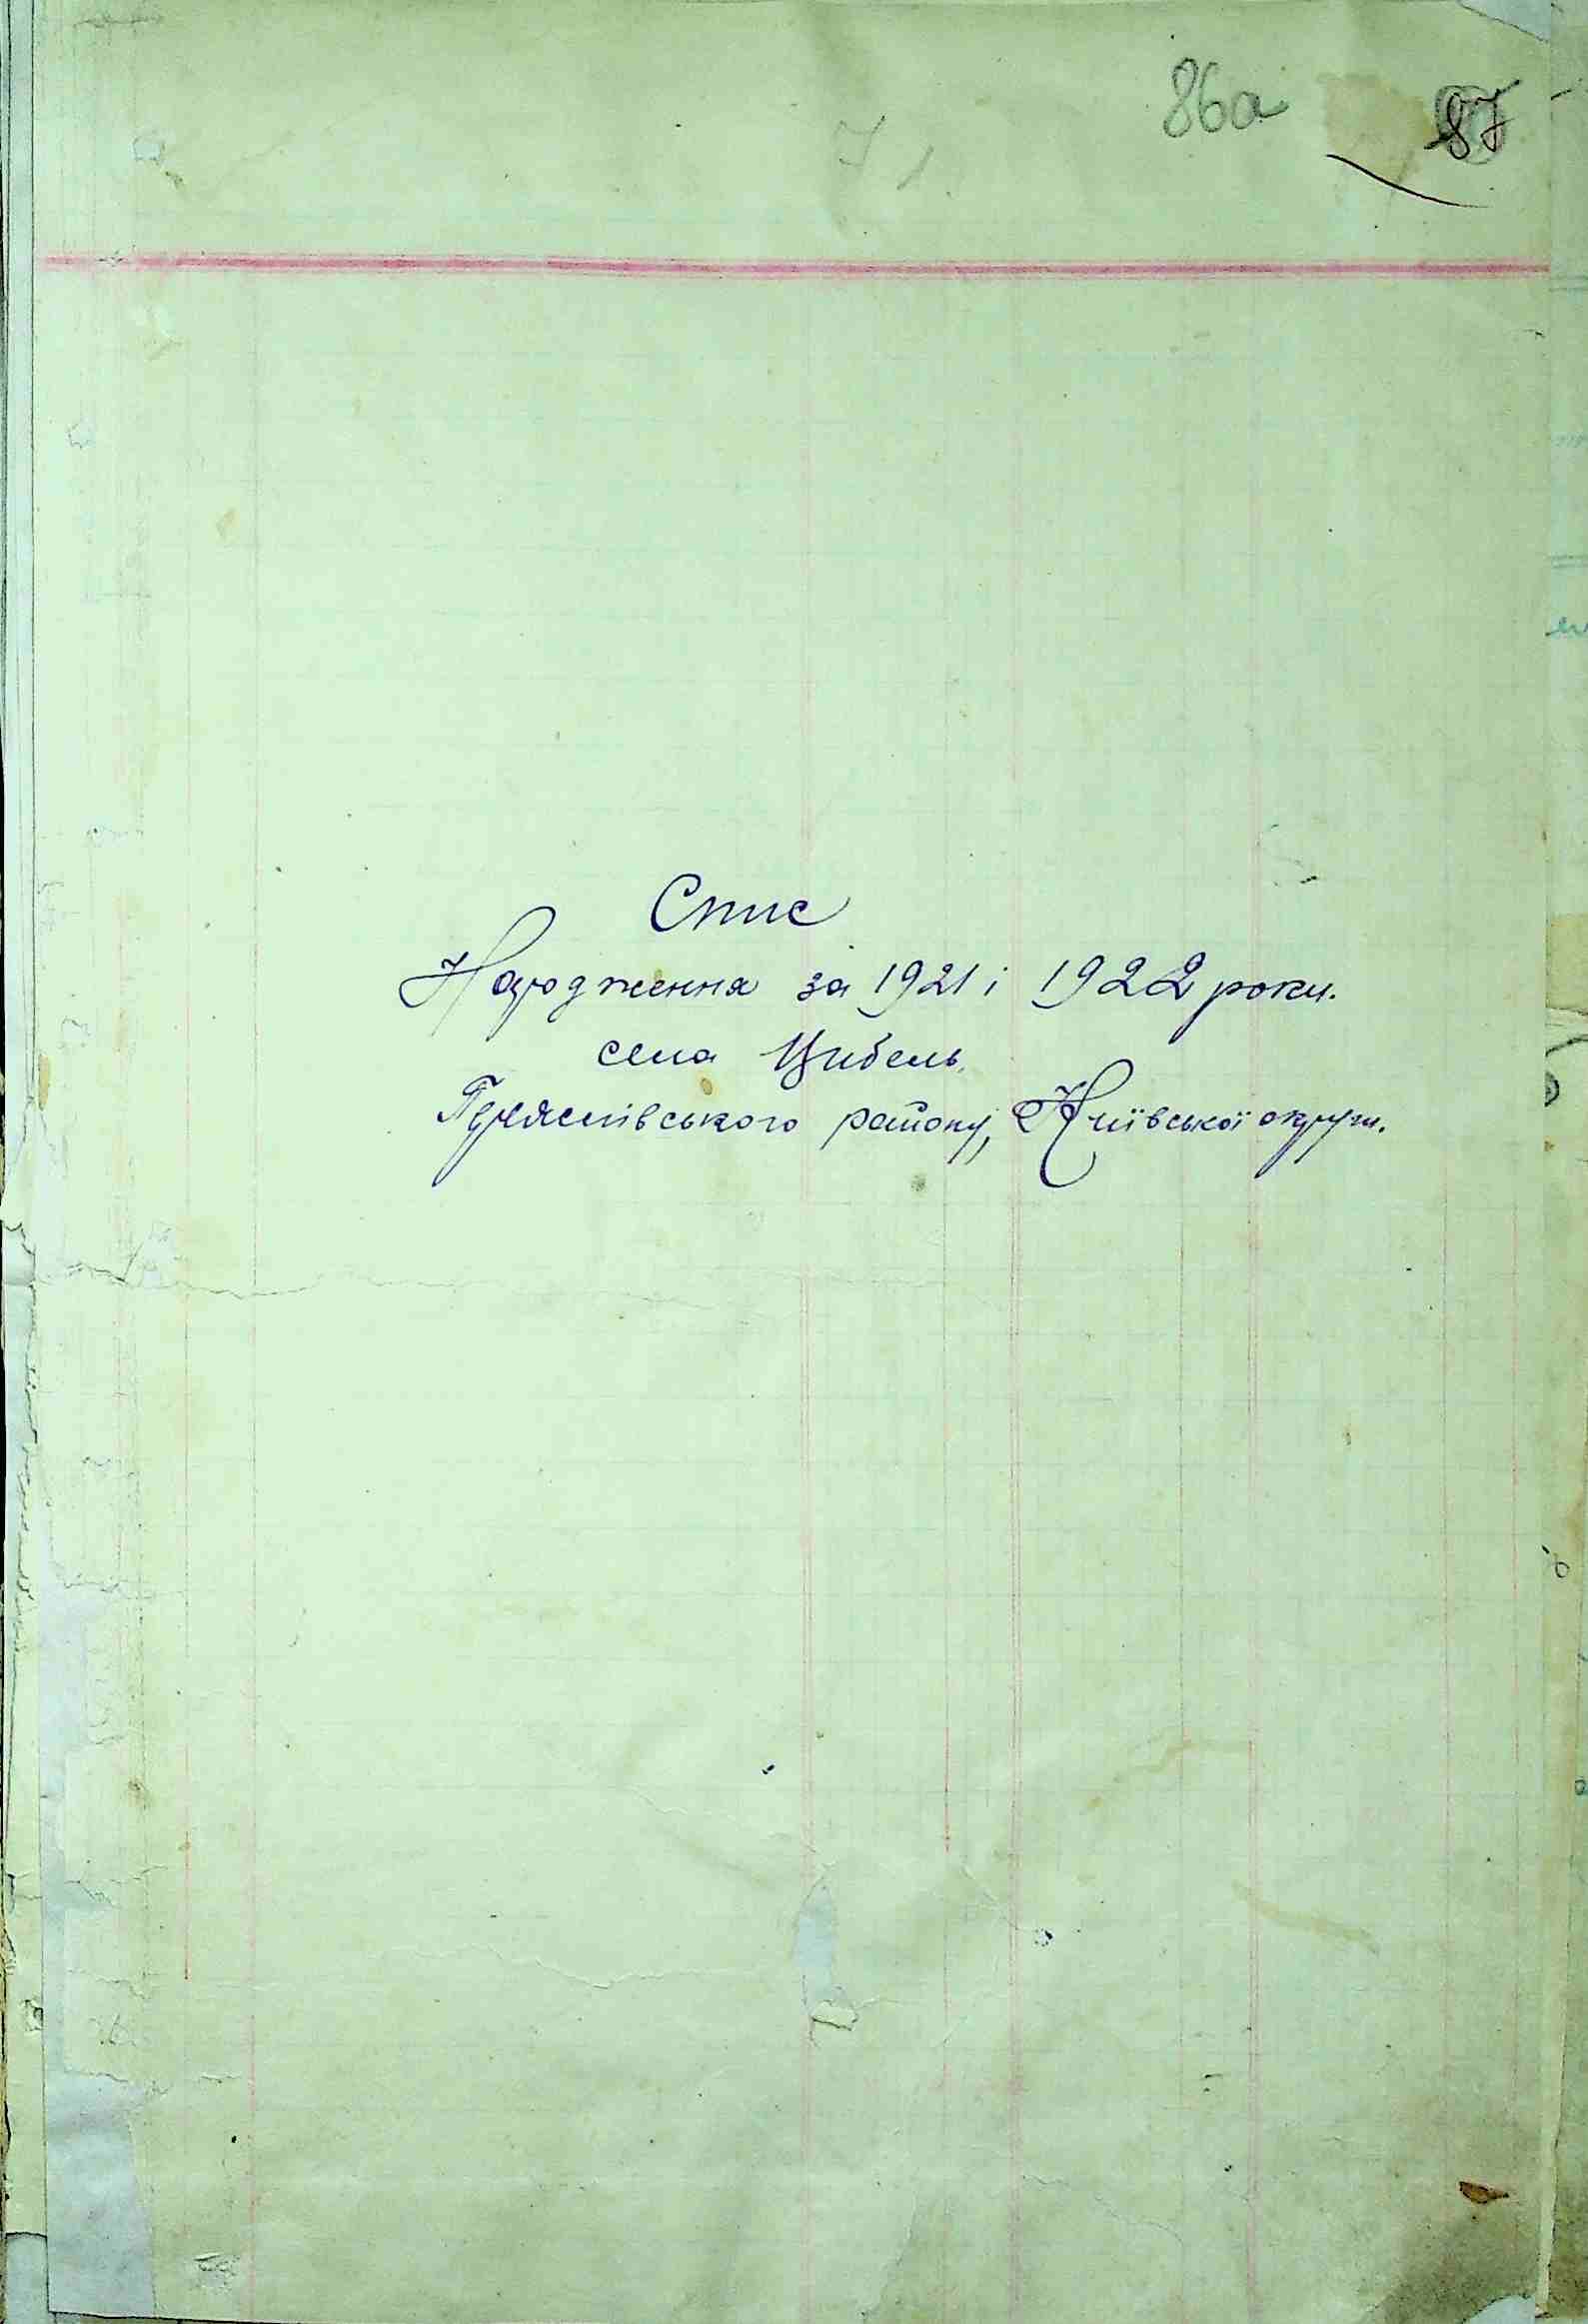 86а 87
71
Спис
Народження за 1921 і 1922 роки.
села Цибель
району, Київської округи.